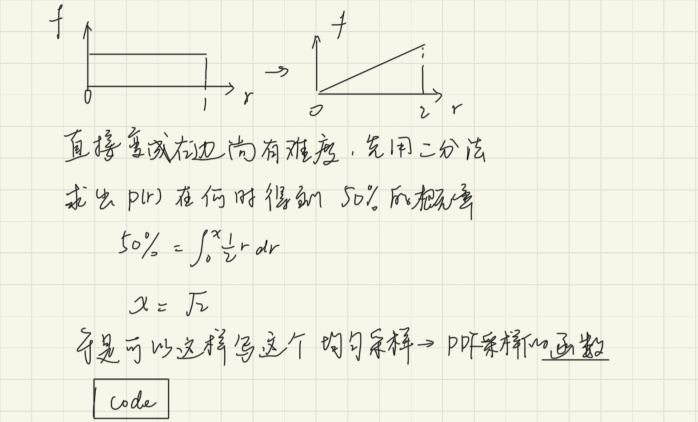 f f
0 1 r → 0 2 r
直接变成右边尚有难度，先用二分法
求出 p(r) 在何时得到 50% 的概率
50% = ∫₀ˣ ½ r dr
x = √2
于是可以这样写这个 均匀采样 → PDF采样的函数
code